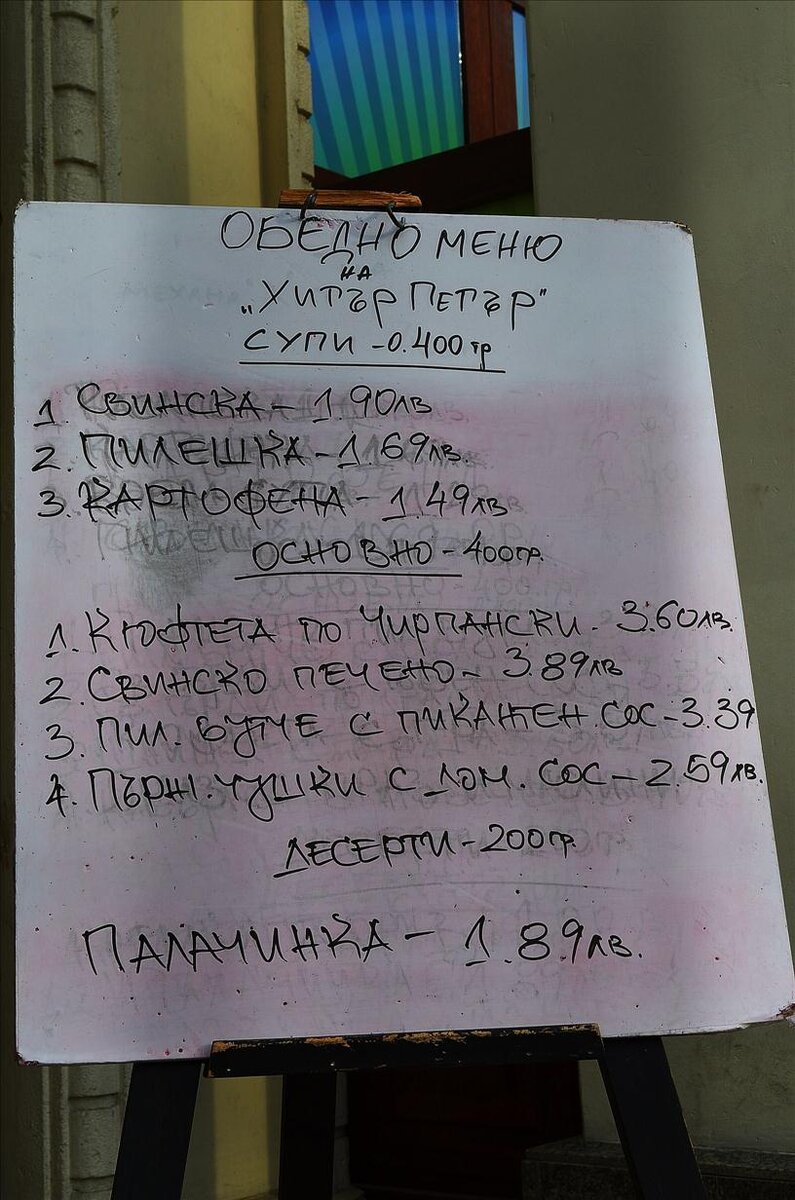 ОБЕДНО МЕНЮ
НА
„ХИТЪР ПЕТЪР"
СУПИ - 0.400 гр
1. СВИНСКА - 1.90лв
2. ПИЛЕШКА - 1.69лв.
3. КАРТОФЕНА - 1.49лв
ОСНОВНО - 400гр.
1. КЮФТЕТА ПО ЧИРПАНСКИ - 3.60лв.
2. СВИНСКО ПЕЧЕНО - 3.89лв
3. ПИЛ. БУТЧЕ С ПИКАНТЕН СОС - 3.39
4. ПЪРЖ. ЧУШКИ С ДОМ. СОС - 2.59лв.
ДЕСЕРТИ - 200гр.
ПАЛАЧИНКА - 1.89лв.